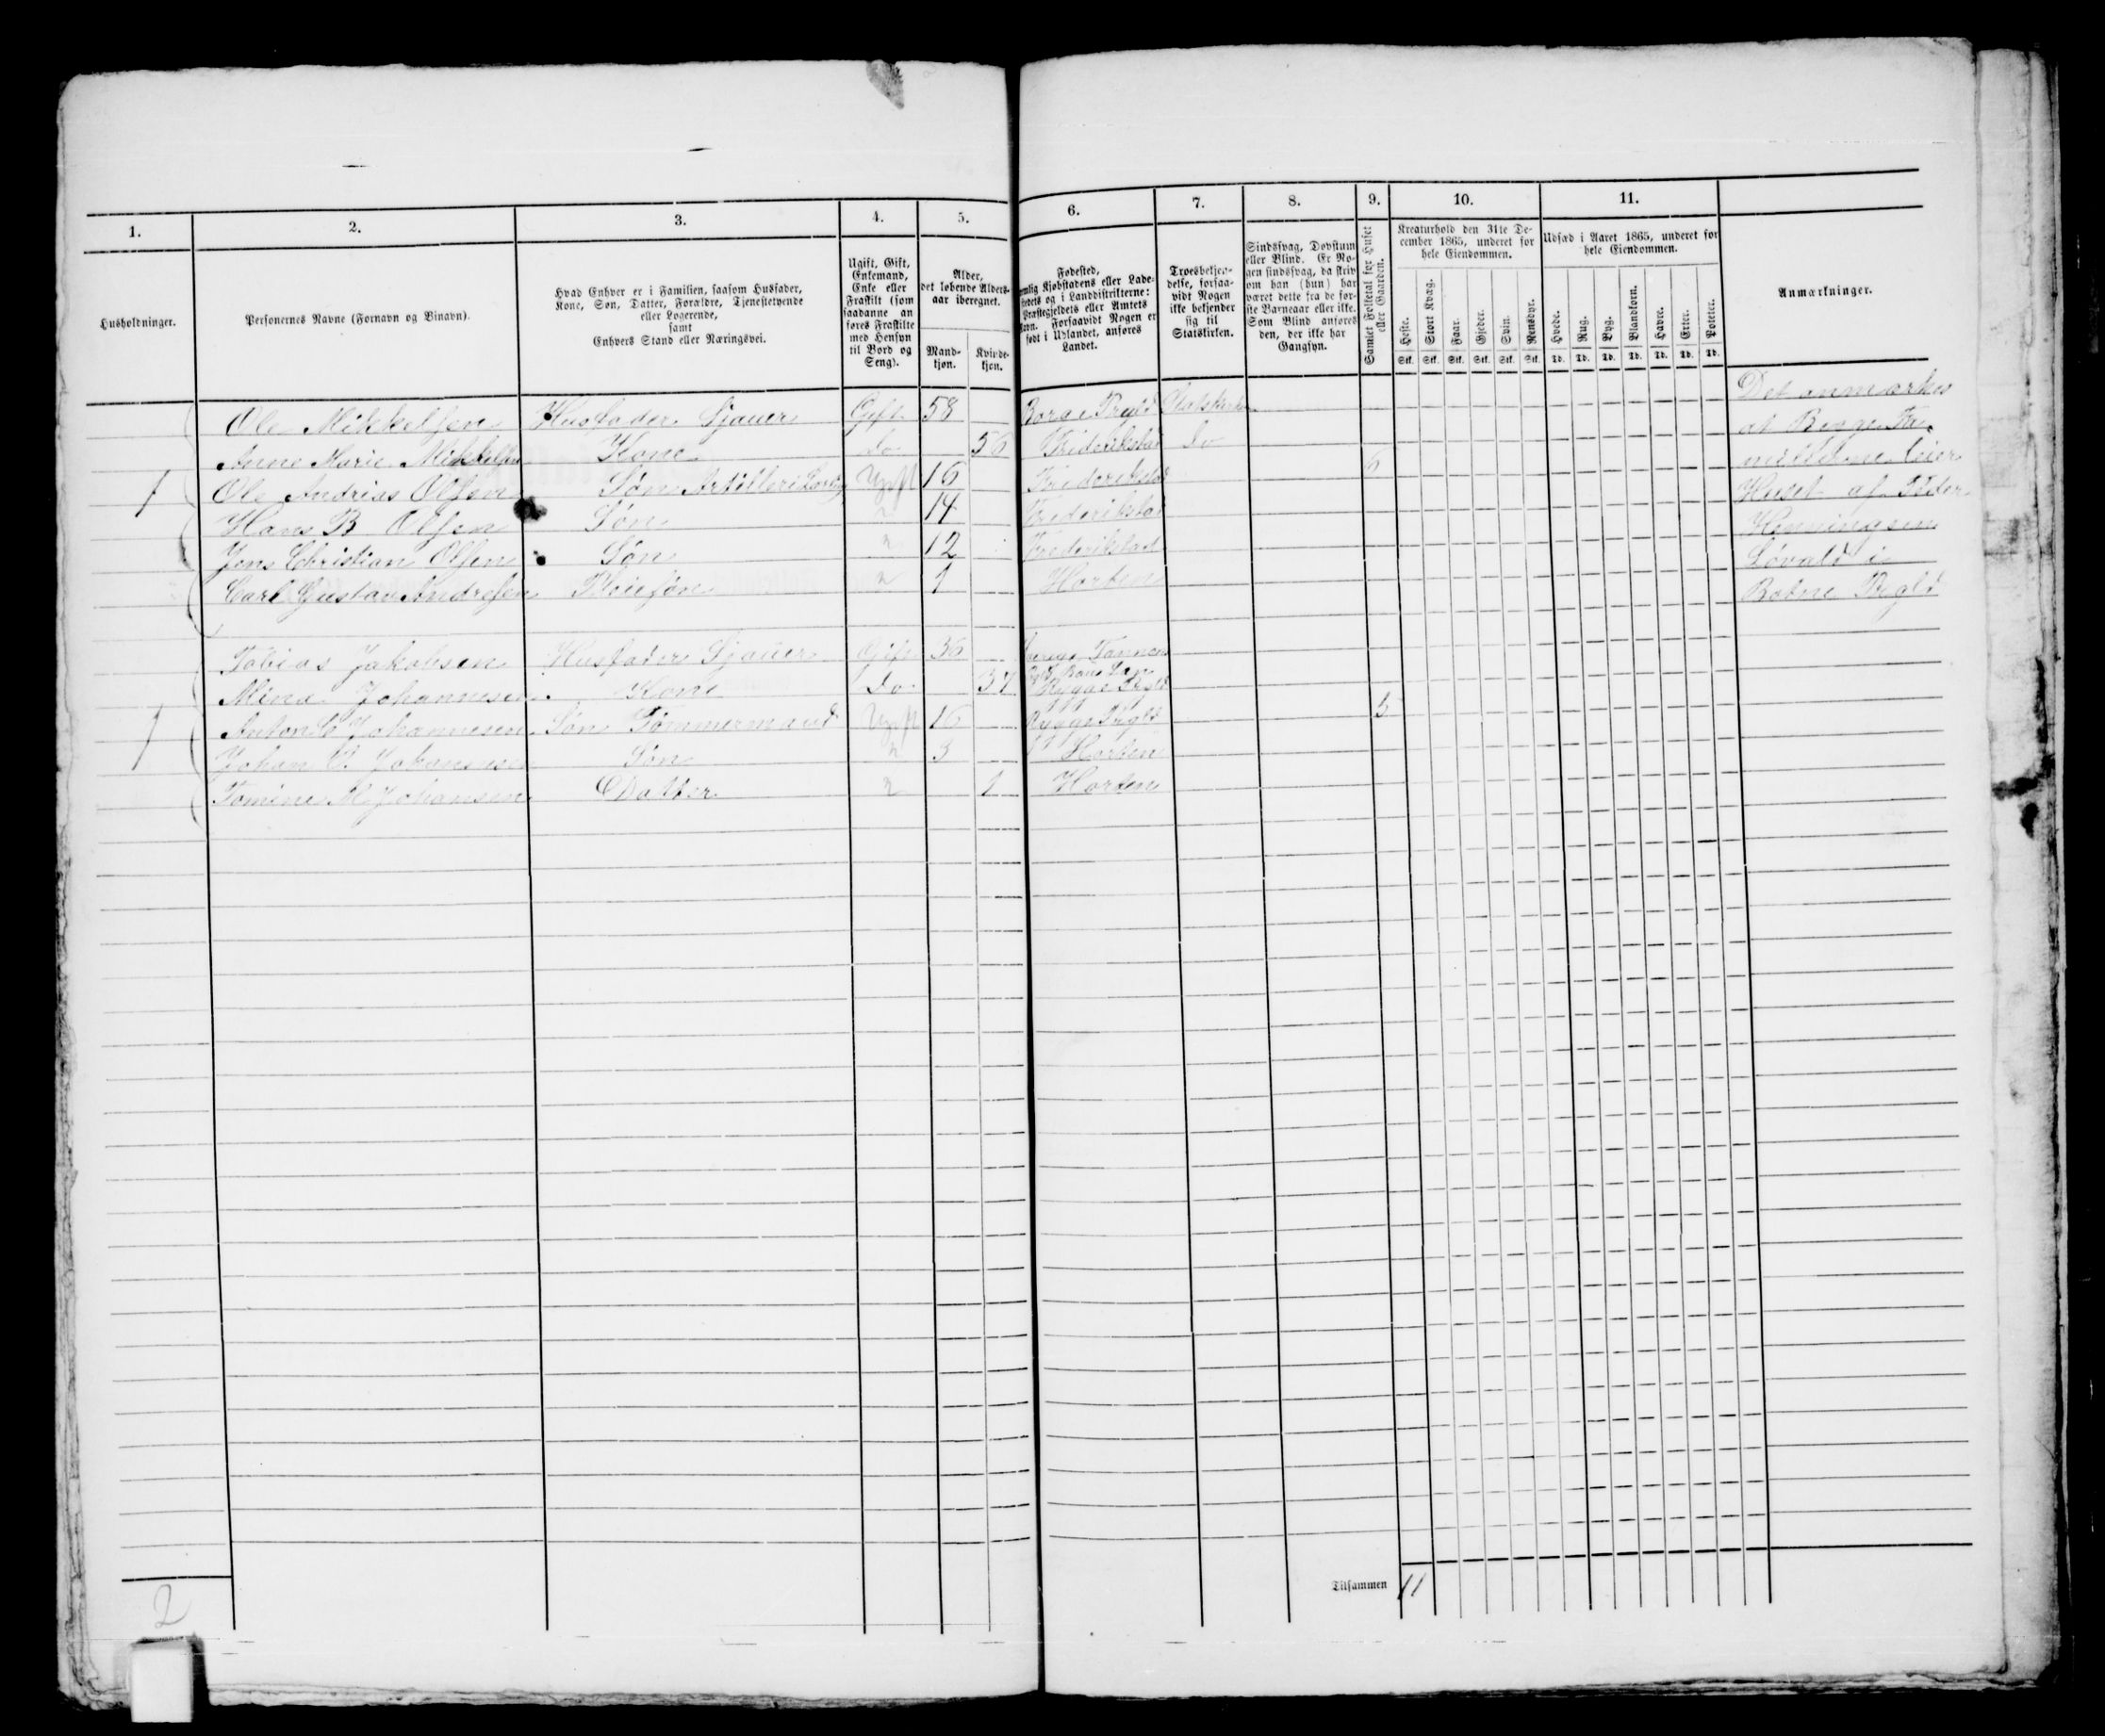 1. 2. 3. 4. 5. 6. 7. 8. 9. 10. 11.
Husholdninger.
Personernes Navne (Fornavn og Binavn).
Hvad Enhver er i Familien, saasom Husfader,
Kone, Søn, Datter, Forældre, Tjenestetyende
eller Logerende,
samt
Enhvers Stand eller Næringsvei.
Ugift, Gift,
Enkemand,
Enke eller
Fraskilt (som
saadanne an
føres Fraskilte
med Hensyn
til Bord og
Seng).
Alder,
det løbende Alders-
aar iberegnet.
Mand-
kjøn.
Kvinde-
kjøn.
Fødested,
Kjøbstadens eller Lade-
stedets og i Landdistrikterne:
Præstegjeldets eller Amtets
Navn. Forsaavidt Nogen er
født i Udlandet, anføres
Landet.
Troesbekjen-
delse, forsaa-
vidt Nogen
ikke bekjender
sig til
Statskirken.
Sindssvag, Døvstum
eller Blind. Er No-
gen sindssvag, da skriv
om han (hun) har
været dette fra de før-
ste Barneaar eller ikke.
Som Blind anføres
den, der ikke har
Gangsyn.
Samlet Folketal for Huset
eller Gaarden.
Kreaturhold den 31te De-
cember 1865, underet for
hele Eiendommen.
Heste. Stort Kvæg. Faar. Gjeder. Svin. Rensdyr.
Stk. Stk. Stk. Stk. Stk. Stk.
Udsæd i Aaret 1865, underet for
hele Eiendommen.
Hvede. Rug. Byg. Blandkorn. Havre. Erter. Poteter.
Td. Td. Td. Td. Td. Td. Td.
Anmærkninger.
Ole Mikkelsen Husfader Sjauer Gift 58 Borge Prgld Statskirken Det anmærkes
Anne Marie Mikkelsen Kone do 56 Frideriksstad do at
1 Ole Andrias Olsen Søn Artilleri Ugift 16 Frideriksstad 6 leier
Hans B Olsen Søn 14 Frideriksstad Huset af
Jens Christian Olsen Søn 12 Frederikstad Henningsen
Carl Gustav Andresen Pleiesøn 1 Horten i
Botne Pgld
Tobias Jakobsen Husfader Sjauer Gift 36
Mina Johannesen Kone Do 37 Rygge Prgld
1 Anton Johannesen Søn Tømmermand Ugift 16 Rygge Prgld 5
Johan Johannesen Søn 3 Horten
Tomine M. Johansen Datter 1 Horten
Tilsammen 11
2